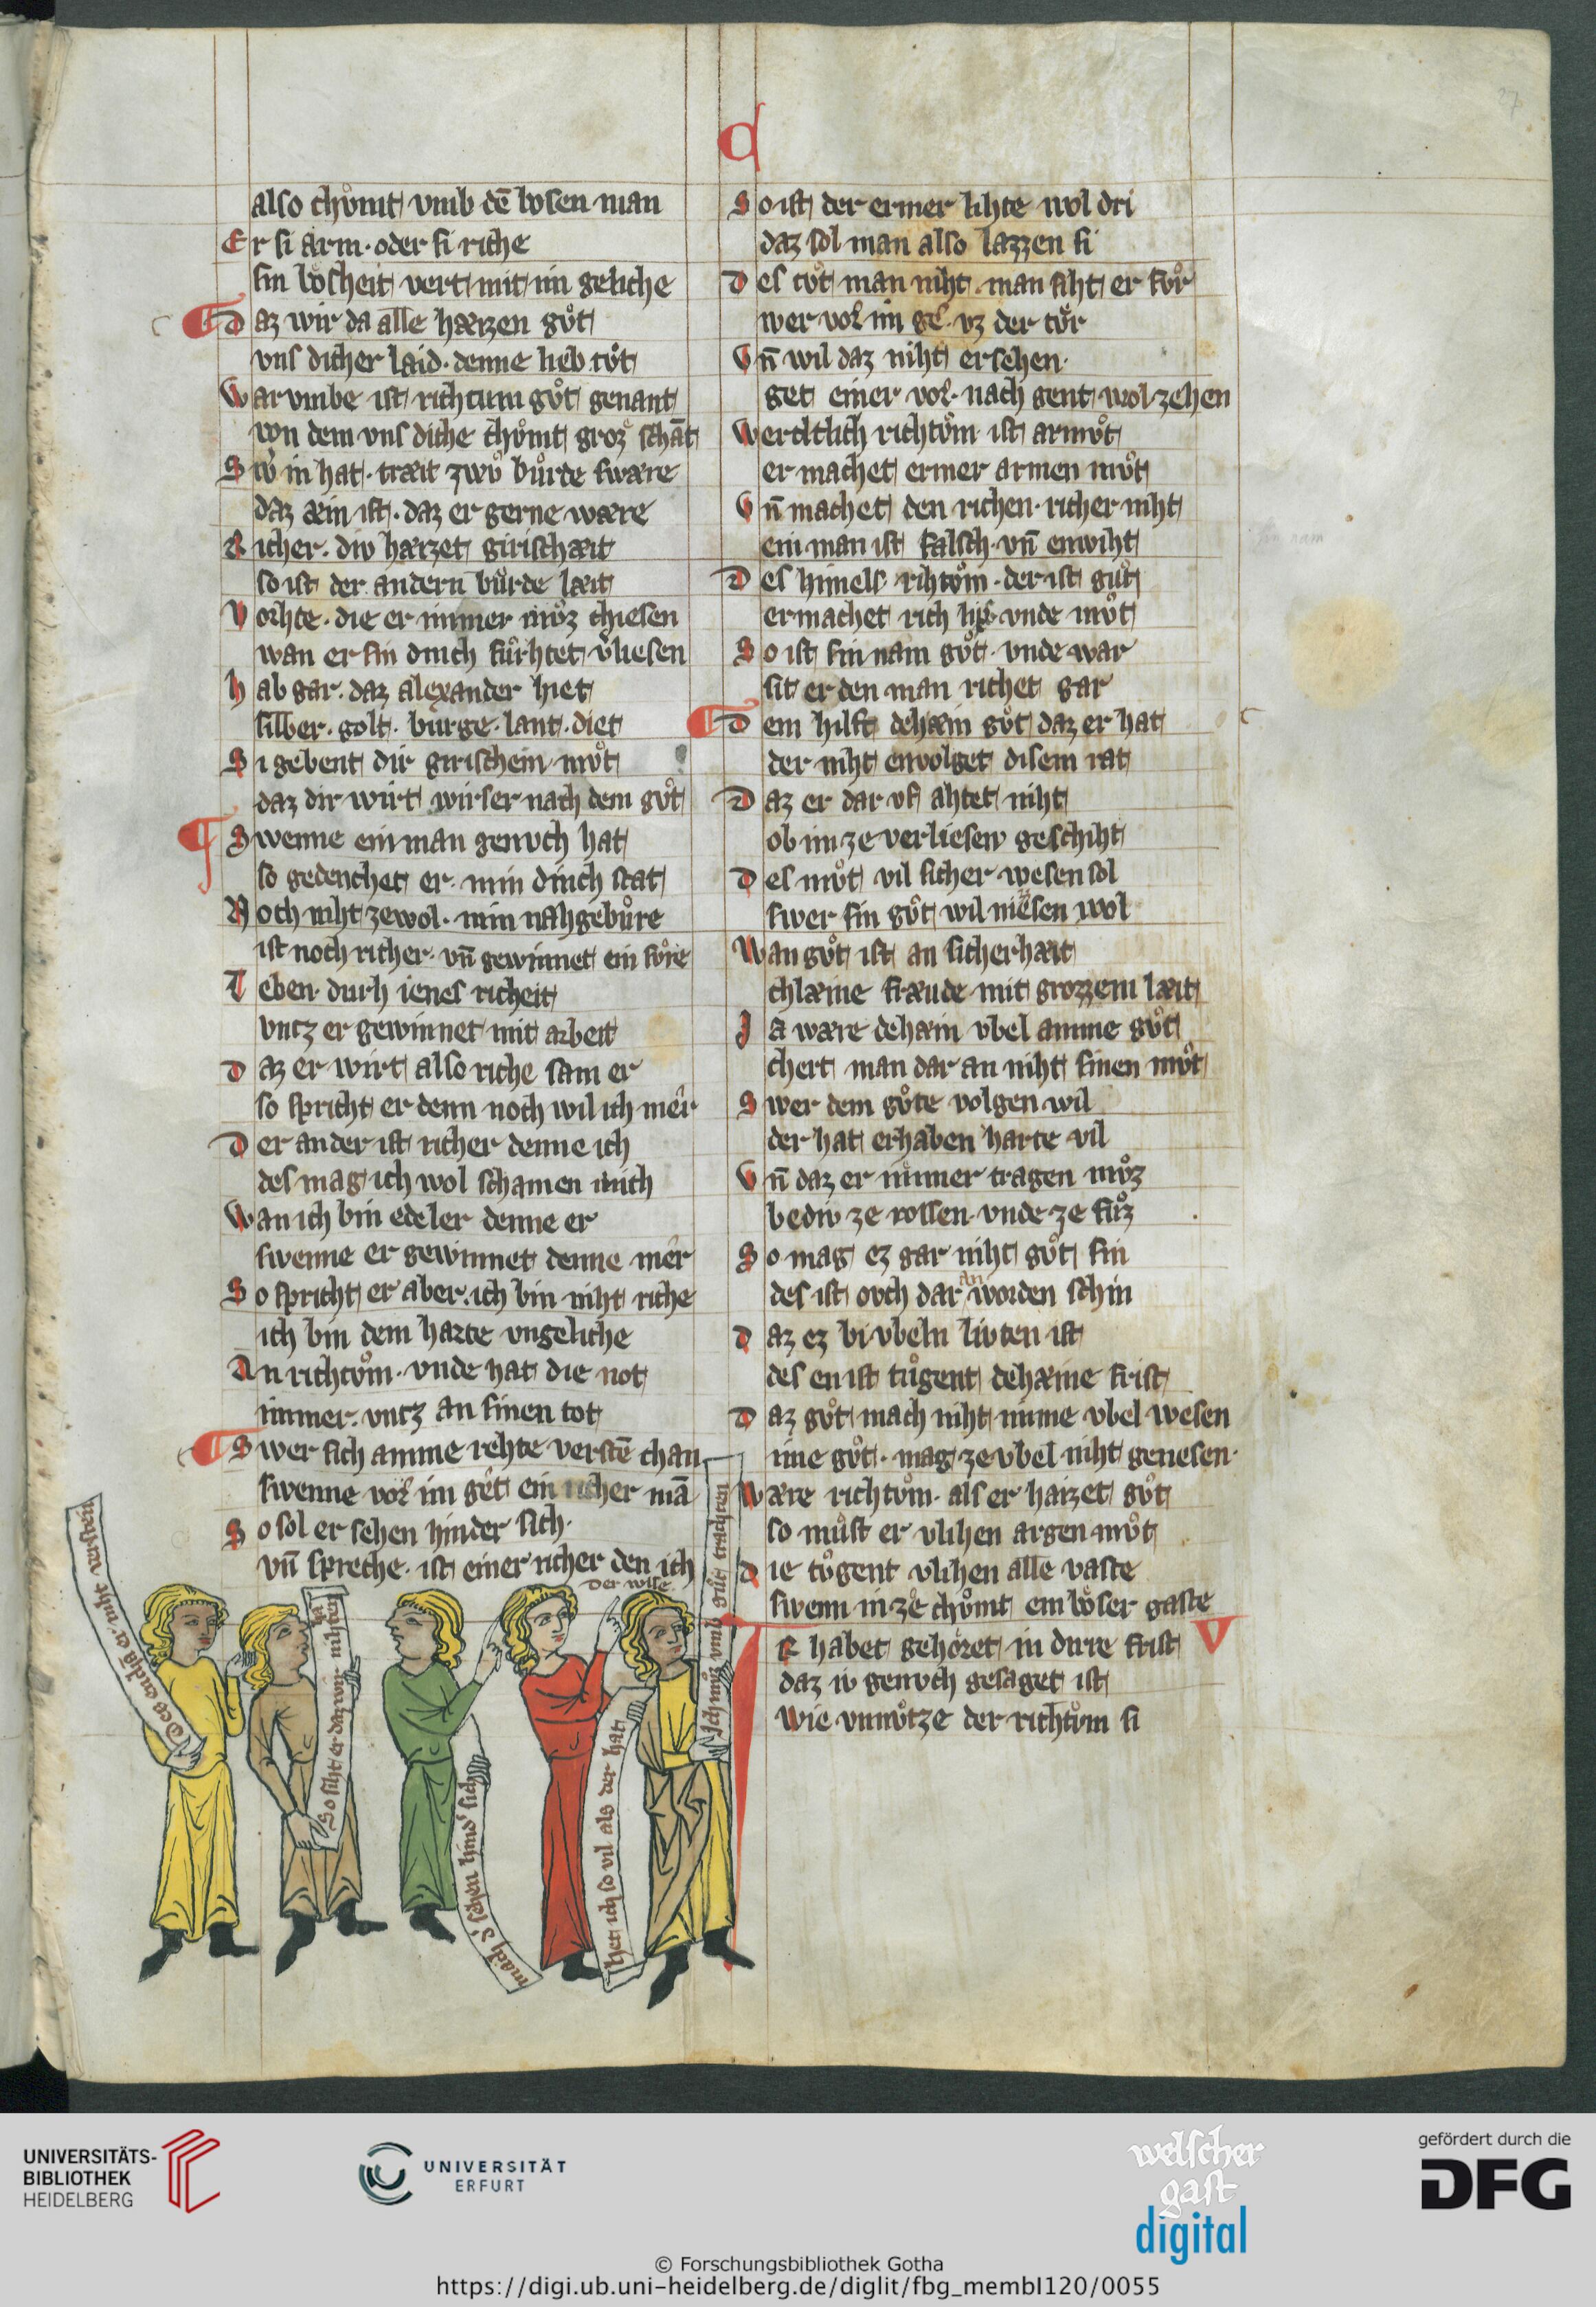 27
d
also chůmt vmb dē bosen man
Er si arm · oder si riche
sin bosheit vert mit im geliche
Daz wir da alle hæizen gůt
vns dicher laid · denne lieb tůt
Warvmbe ist richtum gůt genant
von dem vns diche chůmt groz schāt
Swˢ in hat · træit zwů bůrde swære
daz æin ist · daz er gerne wære
Richer · div hæizet girischæit
so ist der andern bůrde læit
Vorhte · die er immer můz chiesen
wan er sin dinch fůrhtet vˢliesen
Hab gar · daz alexander hiet
silber · golt · burge · lant · diet
Si gebent dir girischein můt
daz dir wirt wirser nach dem gůt
Swenne ein man genvch hat
so gedenchet er · min dinch stat
Noch niht ze wol · min nahgebůre
ist noch richer · vn̄ gewinnet ein fůre
Leben · durh ienes richeit
vntz er gewinnet mit arbeit
Daz er wirt also riche sam er
so spricht er denn noch wil ich mer
Der ander ist richer denne ich
des mag ich wol schamen mich
Wan ich bin edeler denne er
swenne er gewinnet denne mer
So spricht er aber · ich bin niht riche
ich bin dem harte vngeliche
An richtům · vnde hat die not
immer · vntz an sinen tot
Swer sich anime rehte verstē chan
swenne vor im get ein richer mā
So sol er sehen hinder sich ·
vn̄ spreche · ist einer richer den ich
So ist der ermer lihte wol dri
daz sol man also lazzen si
Des tůt man niht · man siht er fůr
wer vor im ge · vz der tůr
Vn̄ wil daz niht ersehen ·
get einer vor · nach gent wol zehen
Werltlich richtům ist armůt
er machet ermer armen můt
Vn̄ machet den richen · richer niht
ein man ist falsch · vn̄ enwiht
Des himels rihtům · der ist gůt
er machet rich lip · vnde můt
So ist sin nam gůt · vnde war
sit er den man richet gar
Dem hilft dehæin gůt daz er hat
der niht envolget disem rat
Daz er dar vf ahtet niht
ob im ze verliesen geschiht
Des můt vil sicher wesen sol
swer sin gůt wil niesen wol
Wan gůt ist an sicherhæit
chlæine fræude mit grozzem læit
Ja wære dehæin vbel anime gůt
chert man dar an niht sinen můt
Swer dem gůte volgen wil
der hat erhaben harte vil
Vn̄ daz er immer tragen můz
bediv ze rossen · vnde ze fůz
So mag ez gar niht gůt sin
des ist ovch dar an worden schin
Daz ez bi vbeln livten ist
des en ist tůgent dehæine frist
Daz gůt mach niht nime vbel wesen
ime gůt · mag ze vbel niht genesen ·
Wære richtům · als er haizet gůt
so můst er vlihen argen můt
Die tůgent vlihen alle vaste
swenn in ze chůmt ein bőser gaste
Ir habet gehőret in dirre frist V
daz iv genvch gesaget ist
wie vnnůtze der richtům si
Des endaʳ er niht vˢsten
So siht er daz wir niht en ha
mach dˢ sehen hindˢ sich
Der wise
het ich so vil als der hat
Ich můz vmb gůt trachten
UNIVERSITÄTS-
BIBLIOTHEK
HEIDELBERG
UNIVERSITÄT
ERFURT
welscher
gast
digital
gefördert durch die
DFG
© Forschungsbibliothek Gotha
https://digi.ub.uni-heidelberg.de/diglit/fbg_membI120/0055